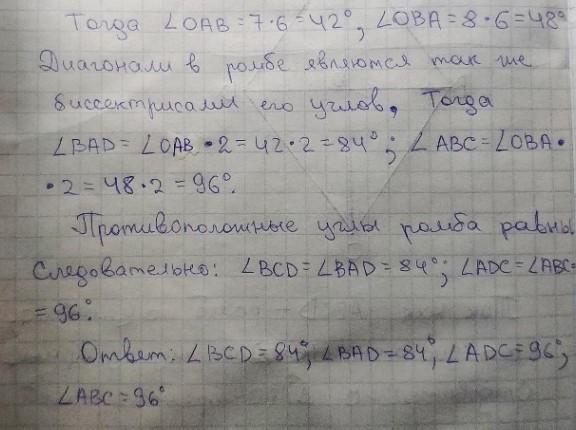 Тогда ∠OAB = 7·6 = 42°, ∠OBA = 8·6 = 48°
Диагонали в ромбе являются так же
биссектрисами его углов. Тогда
∠BAD = ∠OAB · 2 = 42·2 = 84°; ∠ABC = ∠OBA·
·2 = 48·2 = 96°.
Противоположные углы ромба равны
Следовательно: ∠BCD = ∠BAD = 84°; ∠ADC = ∠ABC=
= 96°.
Ответ: ∠BCD = 84°, ∠BAD = 84°, ∠ADC = 96°,
∠ABC = 96°